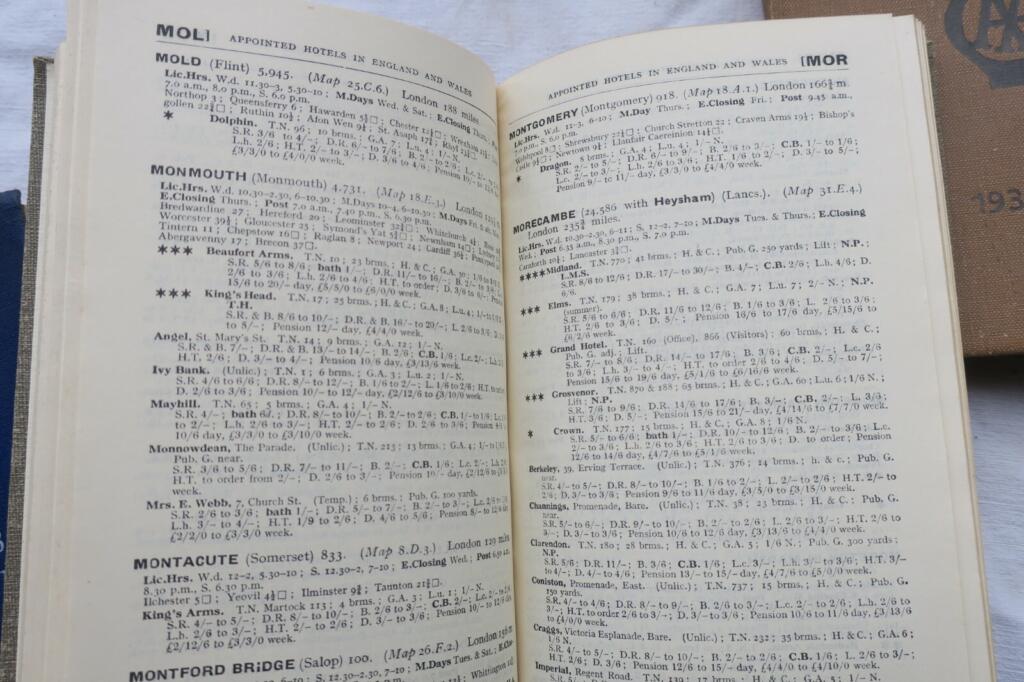 MOL]
APPOINTED HOTELS IN ENGLAND AND WALES
MOLD (Flint) 5,945. (Map 25.C.6.) London 188 miles.
Lic.Hrs. W.d. 11.30-3, 5.30-10; M.Days Wed. & Sat.; E.Closing Thurs.
7.0 a.m., 8.0 p.m., S. 6.0 p.m.
Northop 3; Queensferry 6; Hawarden 5½□; Chester 12□; Wrexham
gollen 22½□; Ruthin 10½; Afon Wen 9½; St. Asaph 17½; Rhyl
* Dolphin. T.N. 96; 10 brms.; G.A. 7; Lu. 4; 1/- N.
S.R. 3/6 to 4/-; D.R. 6/- to 7/6; B. 2/- to 2/6;
L.h. 2/6; H.T. 2/- to 3/-; D. 3/6 to 4/6; Pension 10/- to
£3/3/0 to £4/0/0 week.
MONMOUTH (Monmouth) 4,731. (Map 18.E.3.) London
Lic.Hrs. W.d. 10.30-2.30, 6-10.30; M.Days 10-4, 6-10.30; M.Days
E.Closing Thurs.; Post 7.0 a.m., 7.40 p.m., S. 6.30 p.m.
Bredwardine 27; Hereford 20; Leominster 32½□; Whitchurch
Worcester 39½; Gloucester 25; Symond's Yat 5½□; Newnham
Tintern 11; Chepstow 16□; Raglan 8; Newport 24; Cardiff 36½;
Abergavenny 17; Brecon 37□.
*** Beaufort Arms. T.N. 10; 23 brms.; H. & C.; G.A. 30; 1/6
S.R. 5/6 to 8/6; bath 1/-; D.R. 11/- to 16/-; B. 2/- to
2/6 to 3/6; L.h. 2/6 to 4/6; H.T. to order; D. 3/6 to 6/-;
15/6 to 20/-; £5/5/0 to £6/0/0 week.
*** King's Head. T.N. 17; 25 brms.; H. & C.; G.A. 8; Lu. 4; 1/- N.
T.H.
S.R. & B. 8/6 to 10/-; D.R. & B. 16/- to 20/-; L. 2/6 to 3/6;
to 5/-; Pension 12/- day, £4/4/0 week.
Angel, St. Mary's St. T.N. 14; 9 brms.; G.A. 12; 1/- N.
S.R. & B. 7/-; D.R. & B. 13/- to 14/-; B. 2/6; C.B. 1/6; L.c. 2/-;
H.T. 2/6; D. 3/- to 4/-; Pension 10/6 day, £3/13/6 week.
Ivy Bank. (Unlic.); T.N. 1; 6 brms.; G.A. 3; Lu. 2; 1/- N.
S.R. 4/6 to 6/6; D.R. 8/- to 12/-; B. 1/6 to 2/-; L. 1/6 to 2/6; H.T. to
D. 2/6 to 3/6; Pension 10/- to 12/- day, £2/12/6 to £3/10/0 week.
Mayhill. T.N. 65; 5 brms.; G.A. 4; 1/- N.
S.R. 4/-; bath 6d.; D.R. 8/- to 10/-; B. 2/- to 2/6; C.B. 1/- to 1/6;
to 2/-; L.h. 2/6 to 3/-; H.T. 2/- to 2/6; D. 2/6 to 3/6; Pension
10/6 day, £3/3/0 to £3/10/0 week.
Monnowdean, The Parade. (Unlic.); T.N. 213; 13 brms.; G.A. 4; 1/-
Pub. G. near.
S.R. 3/6 to 5/6; D.R. 7/- to 11/-; B. 2/-; C.B. 1/6; L.c. 2/-; L.h. 2/6
H.T. to order from 2/-; D. 2/6 to 3/-; Pension 10/- day, £2/12/6 to
week.
Mrs. E. Webb, 7, Church St. (Temp.); 6 brms.; Pub. G. 100 yards.
S.R. 2/6 to 3/6; bath 1/-; D.R. 5/- to 7/-; B. 2/- to 3/-; L.c. 2/6 to
L.h. 3/- to 4/-; H.T. 1/9 to 2/6; D. 4/6 to 5/6; Pension 8/- to 12/6
£2/2/0 to £3/3/0 week.
MONTACUTE (Somerset) 833. (Map 8.D.3.) London 129 miles.
Lic.Hrs. W.d. 12-2, 5.30-10; S. 12.30-2, 7-10; E.Closing Wed.; Post 6.50 a.m.
8.30 p.m., S. 6.30 p.m.
Ilchester 5□; Yeovil 4½□; Ilminster 9½; Taunton 21½□.
King's Arms. T.N. Martock 113; 4 brms.; G.A. 3; Lu. 1; 1/- N.
S.R. 4/- to 5/-; D.R. 8/- to 10/-; B. 2/6 to 3/-; C.B. 2/-; L.c.
L.h. 2/6 to 3/-; H.T. 2/- to 2/6; D. 3/- to 4/-; Pension 10/- to 12/6
£2/12/6 to £3/3/0 week.
MONTFORD BRIDGE (Salop) 100. (Map 26.F.2.) London
M.Days Tues. & Sat.;
Whittington
APPOINTED HOTELS IN ENGLAND AND WALES
[MOR
MONTGOMERY (Montgomery) 918. (Map 18.A.1.) London 166¾ m.
Lic.Hrs. W.d. 11-3, 6-10; M.Day Thurs.; E.Closing Fri.; Post 9.45 a.m.,
p.m., S. 6.0 p.m.
Welshpool 8□; Shrewsbury 22½□; Church Stretton 22; Craven Arms 19½; Bishop's
Castle 9½□; Newtown 9½; Llanfair Caereinion 14½□.
* Dragon. 8 brms.; G.A. 4; Lu. 4; 1/- N.
S.R. 2/- to 5/-; D.R. 6/- to 9/-; B. 2/6 to 3/-; C.B. 1/- to 1/6;
L.c. 2/- to 3/-; L.h. 2/6 to 3/6; H.T. 1/6 to 2/-; D. 3/- to 5/-;
Pension 9/- to 11/- day, £3/3/0 to £3/10/0 week.
MORECAMBE (24,586 with Heysham) (Lancs.). (Map 31.E.4.)
London 235¾ miles.
Lic.Hrs. W.d. 10.30-2.30, 6-11; S. 12-2, 7-10; M.Days Tues. & Thurs.; E.Closing
Wed.; Post 6.35 a.m., 8.30 p.m., S. 7.0 p.m.
Carnforth 10½; Lancaster 3½□.
****Midland. T.N. 770; 41 brms.; H. & C.; Pub. G. 250 yards; Lift; N.P.;
L.M.S.
S.R. 8/6 to 12/6; D.R. 17/- to 30/-; B. 4/-; C.B. 2/6; L.h. 4/6; D.
6/6.
*** Elms. T.N. 179; 38 brms.; H. & C.; G.A. 7; L.u. 7; 2/- N.; N.P.
(summer).
S.R. 5/6 to 6/6; D.R. 11/6 to 12/6; B. 1/6 to 3/6; L. 2/6 to 3/6;
H.T. 2/6 to 3/6; D. 5/-; Pension 16/6 to 17/6 day, £5/15/6 to
£6/2/6 week.
*** Grand Hotel. T.N. 160 (Office), 866 (Visitors); 60 brms.; H. & C.;
Pub. G. adj.; Lift.
S.R. 7/- to 8/6; D.R. 14/- to 17/6; B. 3/6; C.B. 2/-; L.c. 2/6
to 3/6; L.h. 3/- to 4/-; H.T. to order 2/6 to 4/6; D. 5/- to 7/-;
Pension 15/6 to 19/6 day, £5/1/6 to £6/16/6 week.
*** Grosvenor. T.N. 870 & 188; 65 brms.; H. & C.; G.A. 60; Lu. 6; 1/6 N.;
Lift; N.P.
S.R. 7/6 to 9/6; D.R. 14/6 to 17/6; B. 3/-; C.B. 2/-; L. 3/6;
H.T. 3/6; D. 5/-; Pension 15/6 to 21/- day, £4/14/6 to £7/7/0 week.
* Crown. T.N. 177; 15 brms.; H. & C.; G.A. 8; 1/6 N.
S.R. 5/- to 6/6; bath 1/-; D.R. 10/- to 12/6; B. 2/- to 3/-; L.c.
2/- to 3/6; L.h. 2/6 to 3/6; H.T. 2/6 to 3/6; D. to order; Pension
12/6 to 14/6 day, £4/7/6 to £5/1/6 week.
Berkeley, 39, Erving Terrace. (Unlic.); T.N. 376; 14 brms.; h. & c.; Pub. G.
near.
S.R. 4/- to 5/-; D.R. 8/- to 10/-; B. 1/6 to 2/-; L. 2/- to 2/6; H.T. 2/- to
2/6; D. 3/- to 3/6; Pension 9/6 to 11/6 day, £3/5/0 to £3/15/0 week.
Channings, Promenade, Bare. (Unlic.); T.N. 38; 23 brms.; H. & C.; Pub. G.
near.
S.R. 5/- to 6/-; D.R. 9/- to 10/-; B. 2/- to 2/6; L. 2/6 to 3/-; H.T. 2/6 to
3/-; D. 3/- to 3/6; Pension 10/6 to 12/6 day, £3/13/6 to £4/4/0 week.
Clarendon. T.N. 180; 28 brms.; H. & C.; G.A. 5; 1/6 N.; Pub. G. 300 yards;
N.P.
S.R. 5/6; D.R. 11/-; B. 3/6; C.B. 1/6; L.c. 3/-; L.h. 3/6; H.T. 3/-
to 4/-; D. 4/6; Pension 13/- to 15/- day, £4/7/6 to £5/0/0 week.
Coniston, Promenade, East. (Unlic.); T.N. 737; 15 brms.; H. & C.; Pub. G.
150 yards.
S.R. 4/- to 4/6; D.R. 8/- to 9/-; B. 2/6 to 3/-; L.c. 2/- to 2/6; L.h. 2/6 to
3/-; H.T. to order 2/6 to 3/-; D. 3/- to 3/6; Pension 10/6 to 11/6 day, £3/13/6
to £4/0/6 week.
Craggs, Victoria Esplanade, Bare. (Unlic.); T.N. 232; 35 brms.; H. & C.; G.A. 6;
1/6 N.
S.R. 4/- to 5/-; D.R. 8/- to 10/-; B. 2/- to 2/6; C.B. 1/6; L. 2/6 to 3/-;
H.T. 2/6; D. 3/6; Pension 12/6 to 15/- day, £4/4/0 to £4/10/0 week.
Imperial, Regent Road. T.N. 139; 17 brms.; H. & C.; Pub. G.
AA
193